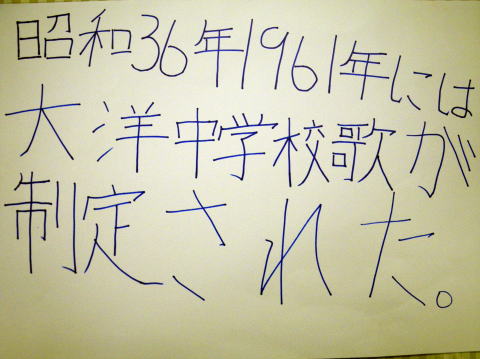 昭和36年1961年には
大洋中学校歌が
制定された。